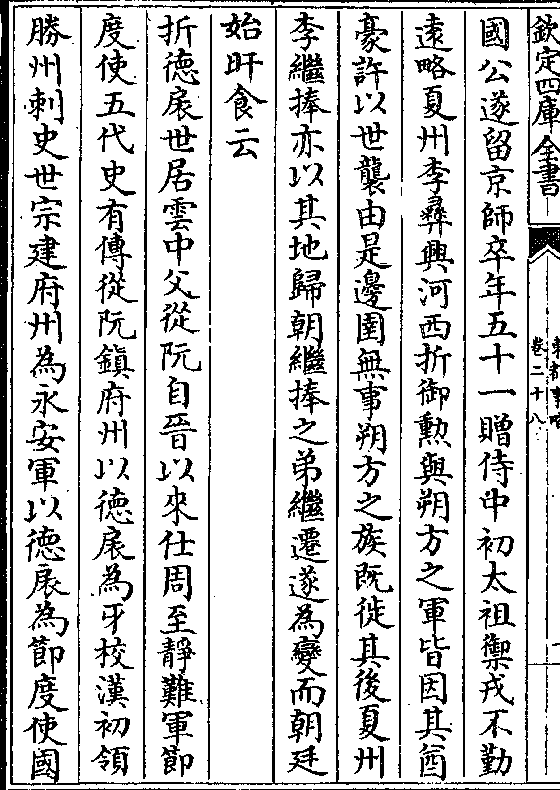 欽定四庫全書
卷二十八
國公遂留京師卒年五十一贈侍中初太祖禦戎不勤
遠略夏州李彝興河西折御勲與朔方之軍皆因其酋
豪許以世襲由是邊圉無事朔方之族既徙其後夏州
李繼捧亦以其地歸朝繼捧之弟繼遷遂為變而朝廷
始旰食云
折徳扆世居雲中父從阮自晉以來仕周至靜難軍節
度使五代史有傳從阮鎮府州以徳扆為牙校漢初領
勝州刺史世宗建府州為永安軍以徳扆為節度使國